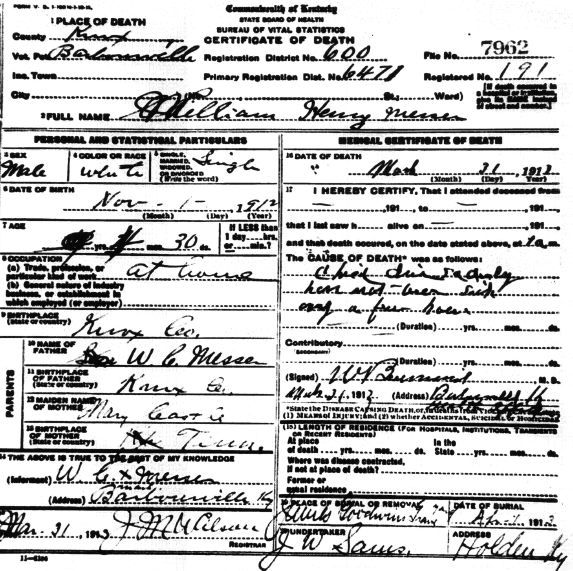 FORM V. S.
Commonwealth of Kentucky
STATE BOARD OF HEALTH
BUREAU OF VITAL STATISTICS
CERTIFICATE OF DEATH
1 PLACE OF DEATH
County Knox
Vot. Pct. Barbourville
Registration District No. 600
File No. 7962
Inc. Town
Primary Registration Dist. No. 6471
Registered No. 191
City (No. St.; Ward)
[If death occurred in a hospital or institution, give its NAME instead of street and number.]
2 FULL NAME William Henry Messer
PERSONAL AND STATISTICAL PARTICULARS
3 SEX Male
4 COLOR OR RACE white
5 SINGLE, MARRIED, WIDOWED, OR DIVORCED (Write the word) Single
6 DATE OF BIRTH
Nov - 1 - 1912
(Month) (Day) (Year)
7 AGE
yrs. mos. 30 ds.
If LESS than 1 day....hrs. or....min.?
8 OCCUPATION
(a) Trade, profession, or particular kind of work
at home
(b) General nature of industry business, or establishment in which employed (or employer)
9 BIRTHPLACE
(State or country)
Knox Co.
PARENTS
10 NAME OF FATHER W C Messer
11 BIRTHPLACE OF FATHER (State or country) Knox Co
12 MAIDEN NAME OF MOTHER May
13 BIRTHPLACE OF MOTHER (State or country) Tenn.
14 THE ABOVE IS TRUE TO THE BEST OF MY KNOWLEDGE
(Informant) W C x Messer
mark
(Address) Barbourville Ky
15
Mar. 31 1913
REGISTRAR
11-6206
MEDICAL CERTIFICATE OF DEATH
16 DATE OF DEATH
March 31 1913
(Month) (Day) (Year)
17 I HEREBY CERTIFY, That I attended deceased from
191 to 191
that I last saw h alive on 191
and that death occured, on the date stated above, at a m.
The CAUSE OF DEATH was as follows:
child died suddenly
have not been sick
only a few hours
(Duration) yrs. mos. ds.
Contributory
(SECONDARY)
(Duration) yrs. mos. ds.
(Signed) M. D.
Mch 31 1913 (Address) Barbourville Ky
18 LENGTH OF RESIDENCE (FOR HOSPITALS, INSTITUTIONS, TRANSIENTS OR RECENT RESIDENTS)
At place of death yrs. mos. ds. In the State yrs. mos. ds.
Where was disease contracted, if not at place of death?
Former or usual residence
19 PLACE OF BURIAL OR REMOVAL
DATE OF BURIAL
April 1 1913
20 UNDERTAKER
J W Sams.
ADDRESS
Holden Ky